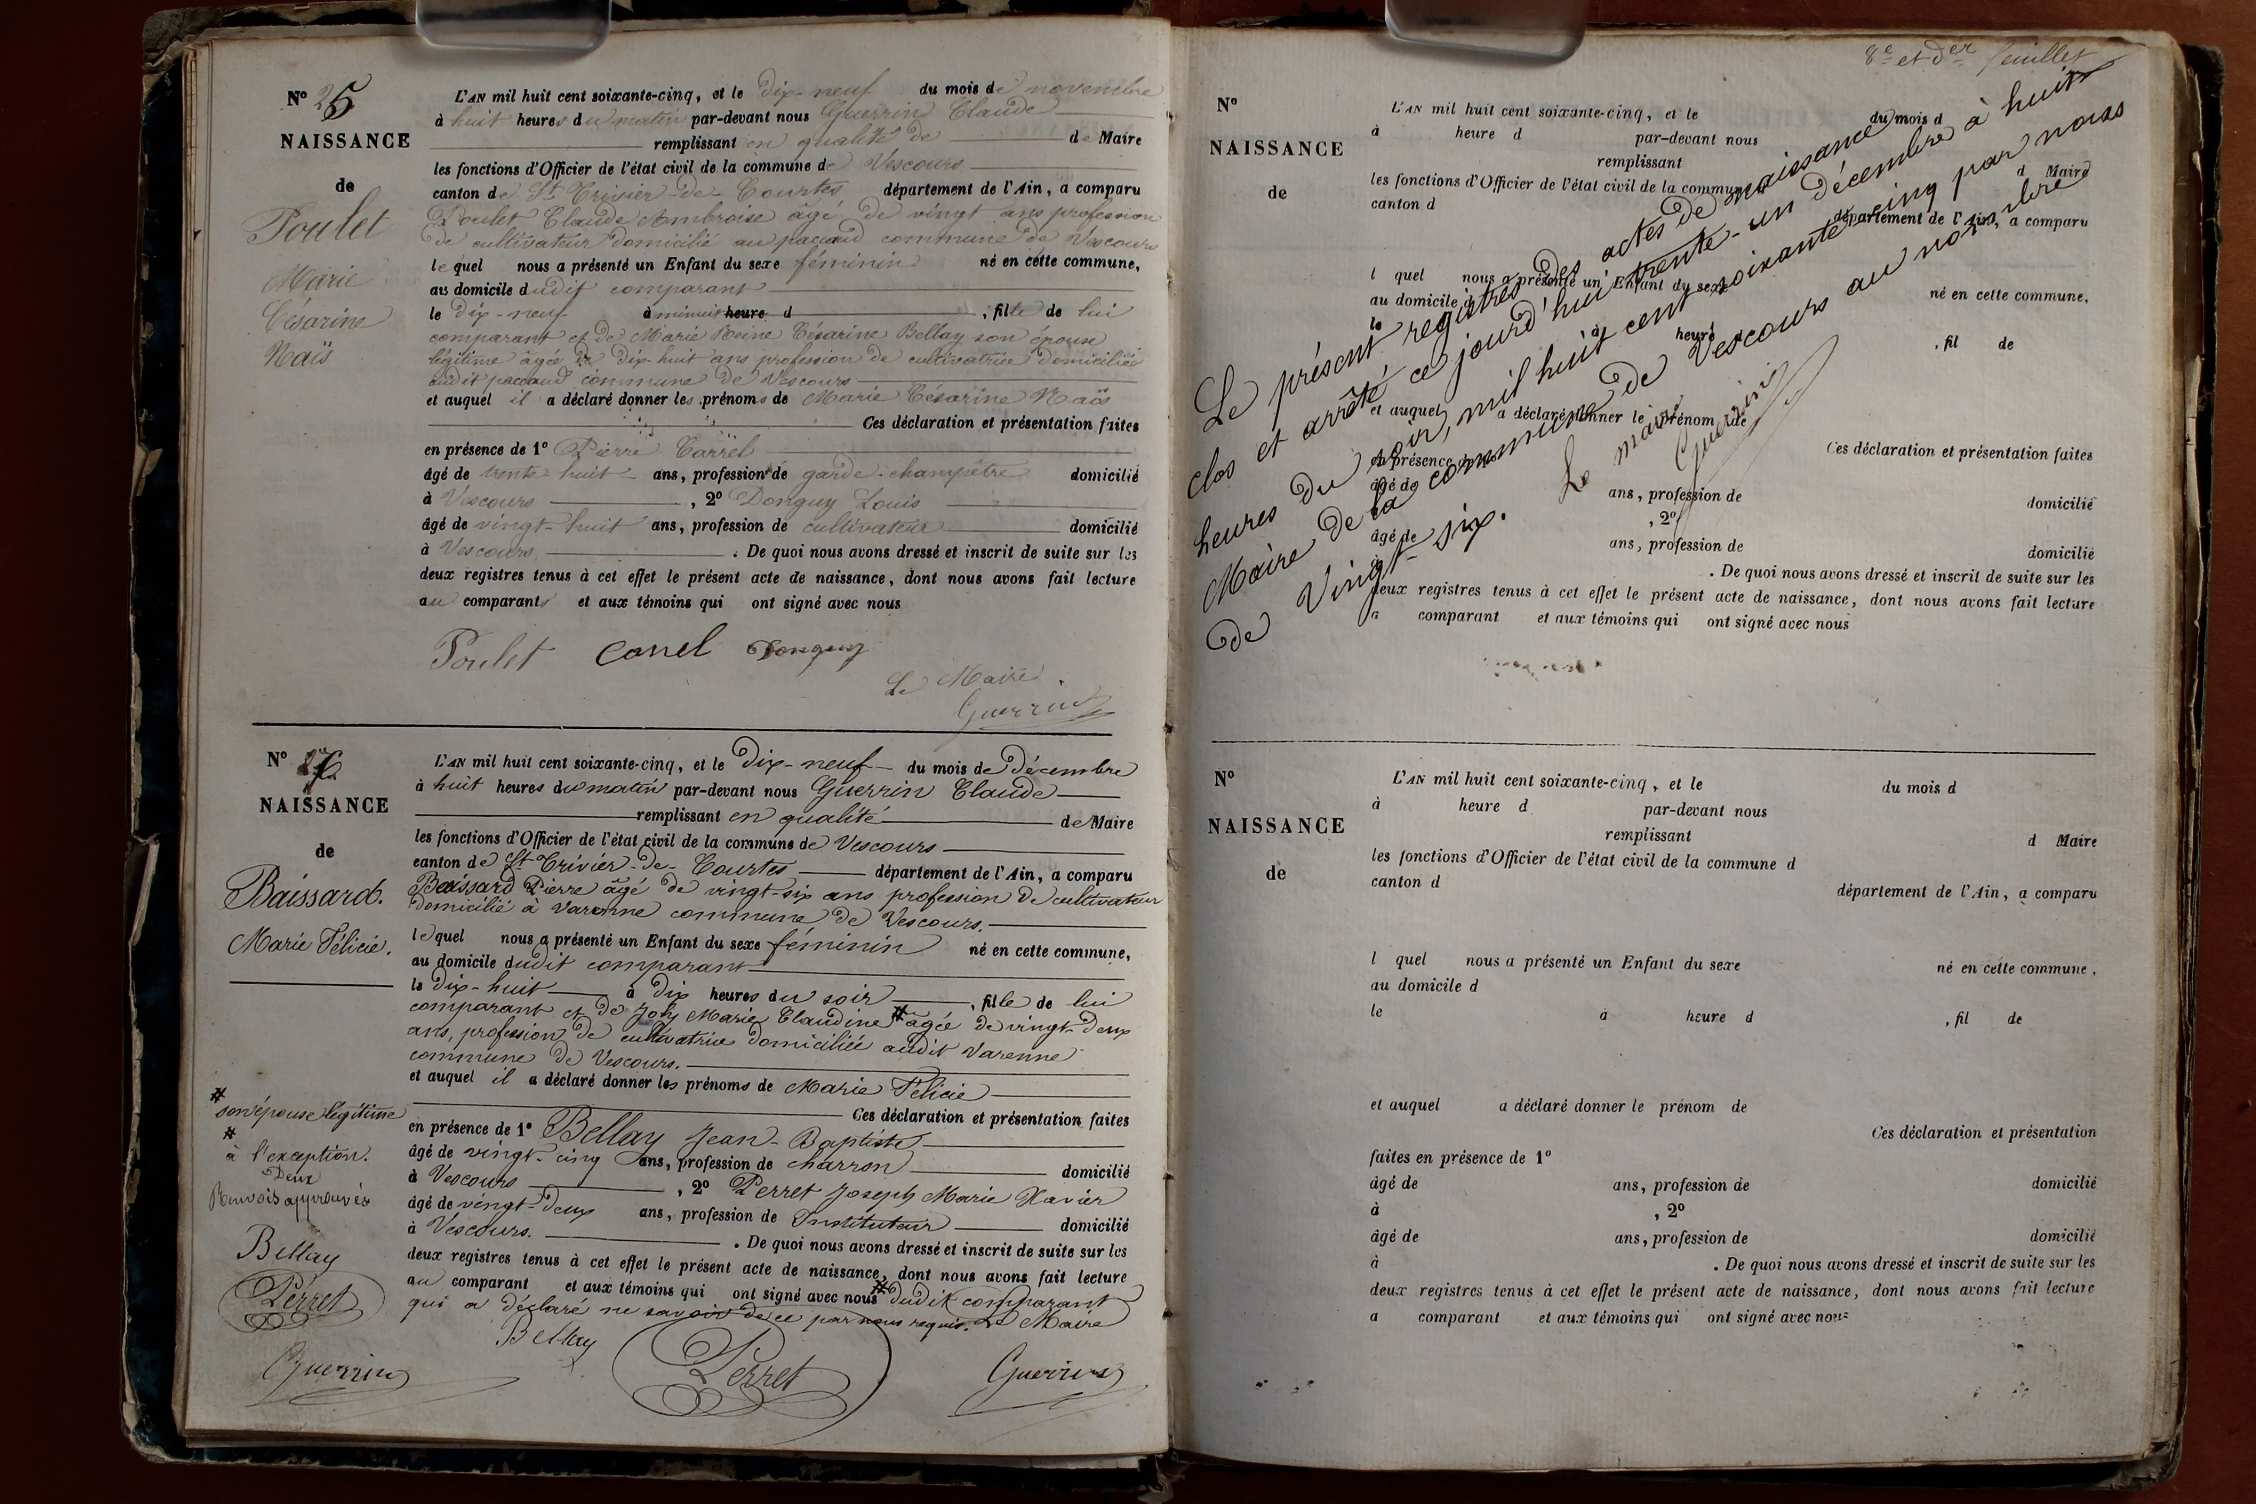 N° 25
NAISSANCE
de
Poulet
Marie
Césarine
Naïs
L'AN mil huit cent soixante-cinq, et le dix-neuf du mois de novembre
à huit heures du matin par-devant nous Guerrin Claude
remplissant en qualité de de Maire
les fonctions d'Officier de l'état civil de la commune de Vescours
canton de St Trivier-de-Courtes département de l'Ain, a comparu
Poulet Claude Ambroise âgé de vingt ans profession
de cultivateur domicilié au pacaud commune de Vescours
lequel nous a présenté un Enfant du sexe féminin né en cette commune,
au domicile dudit comparant
le dix-neuf à minuit heure d , fille de lui
comparant et de Marie Reine Césarine Bellay son épouse
légitime âgée de dix-huit ans profession de cultivatrice domiciliée
audit pacaud commune de Vescours
et auquel il a déclaré donner les prénoms de Marie Césarine Naïs
Ces déclaration et présentation faites
en présence de 1° Pierre Carrel
âgé de trente huit ans, profession de garde-champêtre domicilié
à Vescours , 2° Donguy Louis
âgé de vingt-huit ans, profession de cultivateur domicilié
à Vescours . De quoi nous avons dressé et inscrit de suite sur les
deux registres tenus à cet effet le présent acte de naissance, dont nous avons fait lecture
au comparant et aux témoins qui ont signé avec nous
Poulet Carrel Donguy
Le Maire
Guerrin
N° 26
NAISSANCE
de
Baissard.
Marie Félicie.
L'AN mil huit cent soixante-cinq, et le dix-neuf du mois de décembre
à huit heures du matin par-devant nous Guerrin Claude
remplissant en qualité de Maire
les fonctions d'Officier de l'état civil de la commune de Vescours
canton de St Trivier-de-Courtes département de l'Ain, a comparu
Baissard Pierre âgé de vingt-six ans profession de cultivateur
domicilié à Varenne commune de Vescours.
lequel nous a présenté un Enfant du sexe féminin né en cette commune,
au domicile dudit comparant
le dix-huit à dix heures du soir , fille de lui
comparant et de Joly Marie Claudine # âgée de vingt-deux
ans, profession de cultivatrice domiciliée audit Varenne
commune de Vescours.
et auquel il a déclaré donner les prénoms de Marie Félicie
Ces déclaration et présentation faites
en présence de 1° Bellay Jean-Baptiste
âgé de vingt-cinq ans, profession de charron domicilié
à Vescours , 2° Perret Joseph Marie Xavier
âgé de vingt-deux ans, profession de Instituteur domicilié
à Vescours. . De quoi nous avons dressé et inscrit de suite sur les
deux registres tenus à cet effet le présent acte de naissance, dont nous avons fait lecture
au comparant et aux témoins qui ont signé avec nous # dudit comparant
qui a déclaré ne savoir de ce par nous requis. Le Maire
Bellay Perret Guerrin
# son épouse légitime
# à l'exception.
Deux
Renvois approuvés
Bellay
Perret
Guerrin
8e et der feuillet
N°
NAISSANCE
de
L'AN mil huit cent soixante-cinq, et le du mois d
à heure d par-devant nous
remplissant d Maire
les fonctions d'Officier de l'état civil de la commune d
canton d département de l'Ain, a comparu
l quel nous a présenté un Enfant du sexe né en cette commune,
au domicile d
le à heure , fil de
et auquel a déclaré donner le prénom de
Ces déclaration et présentation faites
en présence
âgé de ans, profession de domicilié
, 2°
âgé de ans, profession de domicilié
. De quoi nous avons dressé et inscrit de suite sur les
deux registres tenus à cet effet le présent acte de naissance, dont nous avons fait lecture
a comparant et aux témoins qui ont signé avec nous
Le présent registres des actes de naissance
clos et arrêté ce jourd'hui trente-un décembre à huit
heures du soir, mil huit cent soixante-cinq par nous
Maire de la commune de Vescours au nombre
de Vingt-six.
Le maire
Guerrin
N°
NAISSANCE
de
L'AN mil huit cent soixante-cinq, et le du mois d
à heure d par-devant nous
remplissant d Maire
les fonctions d'Officier de l'état civil de la commune d
canton d département de l'Ain, a comparu
l quel nous a présenté un Enfant du sexe né en cette commune,
au domicile d
le à heure d , fil de
et auquel a déclaré donner le prénom de
Ces déclaration et présentation
faites en présence de 1°
âgé de ans, profession de domicilié
à , 2°
âgé de ans, profession de domicilié
à . De quoi nous avons dressé et inscrit de suite sur les
deux registres tenus à cet effet le présent acte de naissance, dont nous avons fait lecture
a comparant et aux témoins qui ont signé avec nous